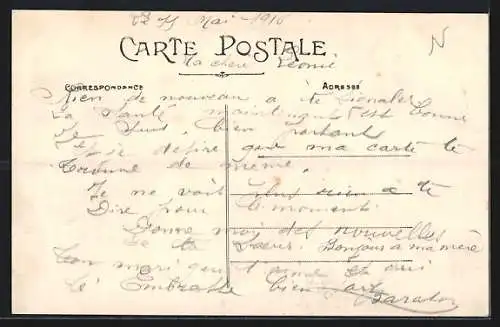 Mai 1916
N
CARTE POSTALE
Ma chere Léonie
CORRESPONDANCE
ADRESSE
Rien de nouveau a te signaler
La santé maintenant est bonne
Je suis bien portant
Et je desire que ma carte te
trouve de meme
Je ne vois plus rien a te
Dire pour le moment
Donne moi des nouvelles
de ta soeur. Bonjour a ma mère
Ton mari qui t'aime et qui
t'embrasse bien fort